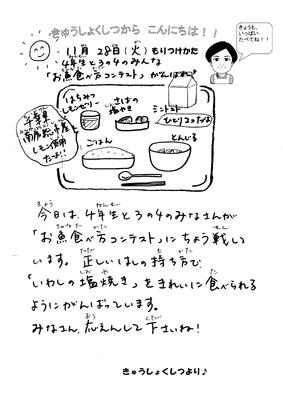 きゅうしょくしつから こんにちは！！
きょうも、
いっぱい
たべてね！！
11月 28日(火) もりつけかた
4年生と3の4のみんな
「お魚食べ方コンテスト」がんばれ
はちみつ
レモンゼリー
さばの
塩やき
ミントマト
ひとり2コだよ
千葉県
南房総市産
レモン使用
だよ!!
ごはん
とんじる
今日は、4年生と3の4のみなさんが
「お魚食べ方コンテスト」にちょう戦して
います。正しいはしの持ち方で、
「いわしの塩焼き」をきれいに食べられる
ようにがんばっています。
みなさん、応えんして下さいね！
きゅうしょくしつより♪